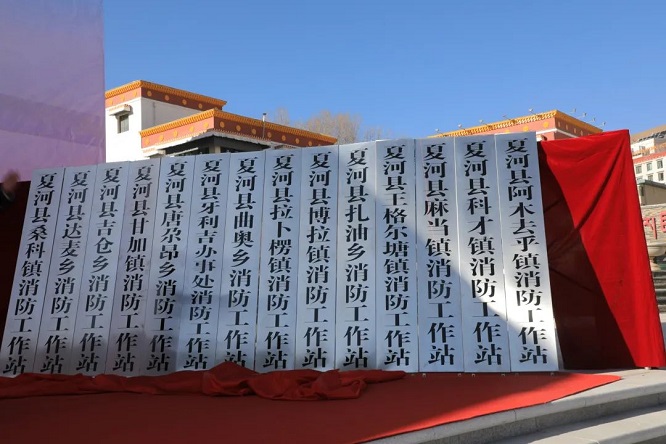 夏河县桑科镇消防工作站
夏河县达麦乡消防工作站
夏河县吉仓乡消防工作站
夏河县甘加镇消防工作站
夏河县唐尕昂乡消防工作站
夏河县牙利吉办事处消防工作站
夏河县曲奥乡消防工作站
夏河县拉卜楞镇消防工作站
夏河县博拉镇消防工作站
夏河县扎油乡消防工作站
夏河县王格尔塘镇消防工作站
夏河县麻当镇消防工作站
夏河县科才镇消防工作站
夏河县阿木去乎镇消防工作站